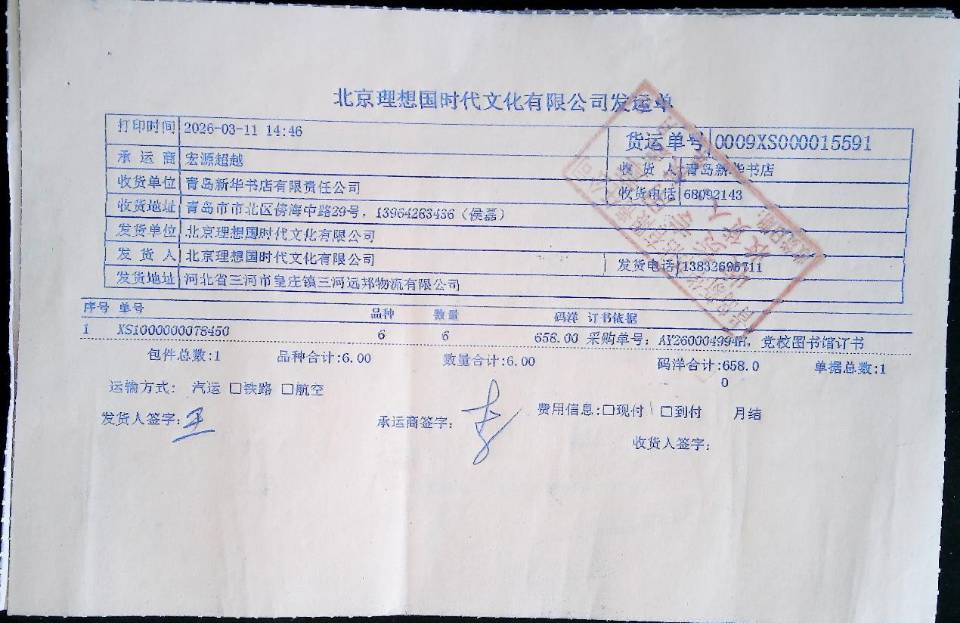 北京理想国时代文化有限公司发运单
打印时间 2026-03-11 14:46 货运单号 0009XS000015591
承运商 宏源超越 收货人 青岛新华书店
收货单位 青岛新华书店有限责任公司 收货电话 68092143
收货地址 青岛市市北区傍海中路29号，13964283436（侯磊）
发货单位 北京理想国时代文化有限公司
发货人 北京理想国时代文化有限公司 发货电话 13832695711
发货地址 河北省三河市皇庄镇三河远邦物流有限公司
序号 单号 品种 数量 码洋 订书依据
1 XS1000000078450 6 6 658.00 采购单号：，党校图书馆订书
包件总数:1 品种合计:6.00 数量合计:6.00 码洋合计:658.00 单据总数:1
运输方式： 汽运 □铁路 □航空
费用信息:□现付 □到付 月结
发货人签字: 王 承运商签字: 李
收货人签字: